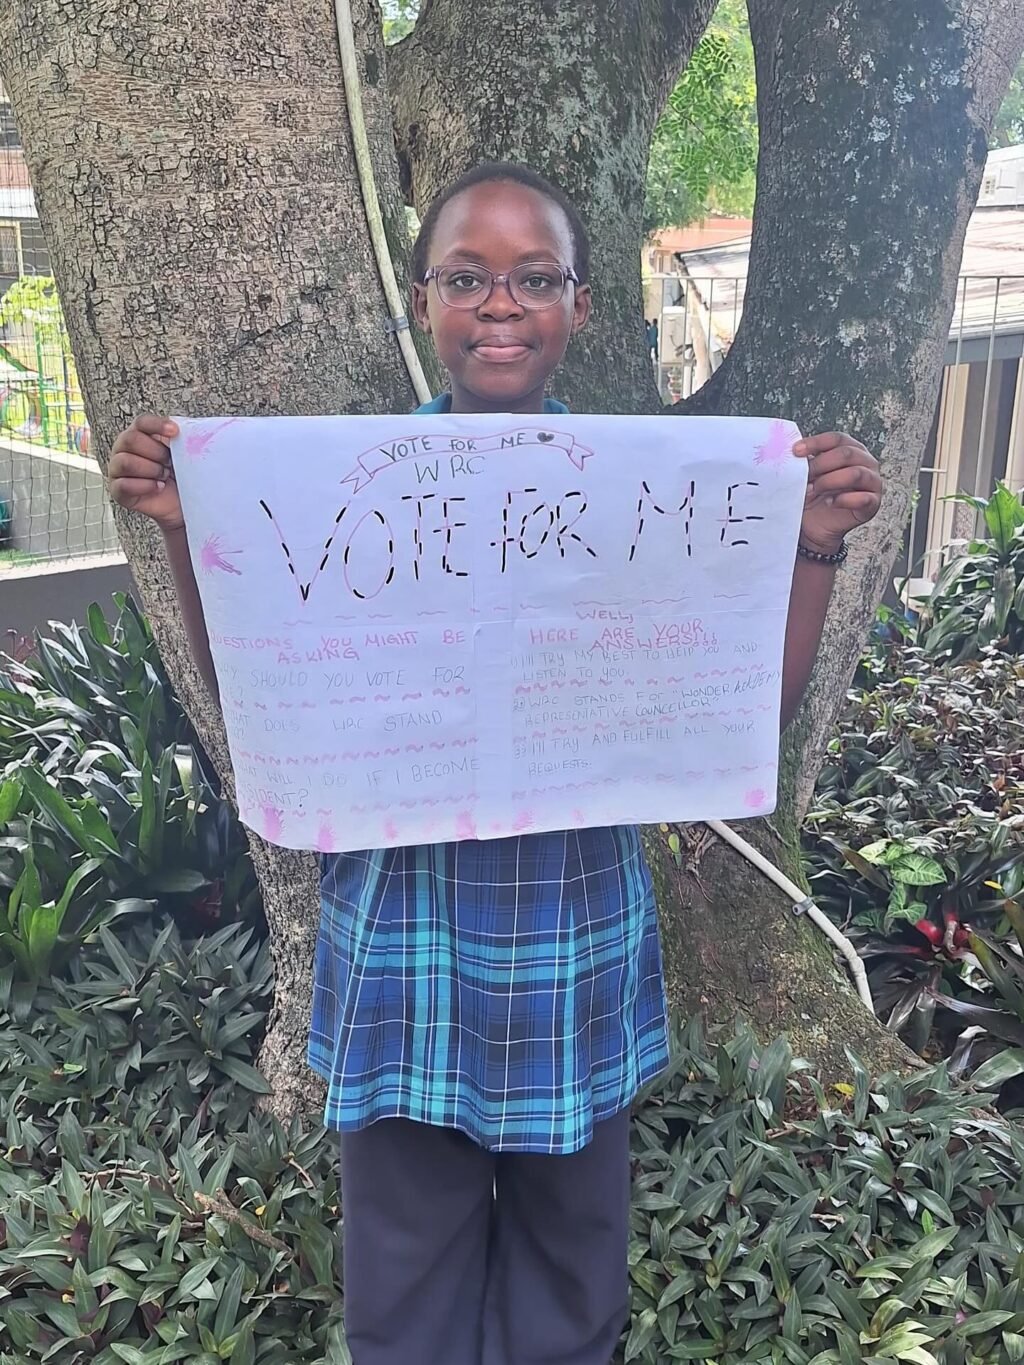 VOTE FOR ME
WRC
VOTE FOR ME
QUESTIONS YOU MIGHT BE
ASKING
WHY SHOULD YOU VOTE FOR
ME?
WHAT DOES WRC STAND
WHAT WILL I DO IF I BECOME
PRESIDENT?
WELL,
HERE ARE YOUR
ANSWERS!!!
1) I'll TRY MY BEST TO HELP YOU AND
LISTEN TO YOU.
2) WRC STANDS FOR "WONDER ACADEMY
REPRESENTATIVE COUNCELLOR"
3) I'll TRY AND FULFILL ALL YOUR
REQUESTS.